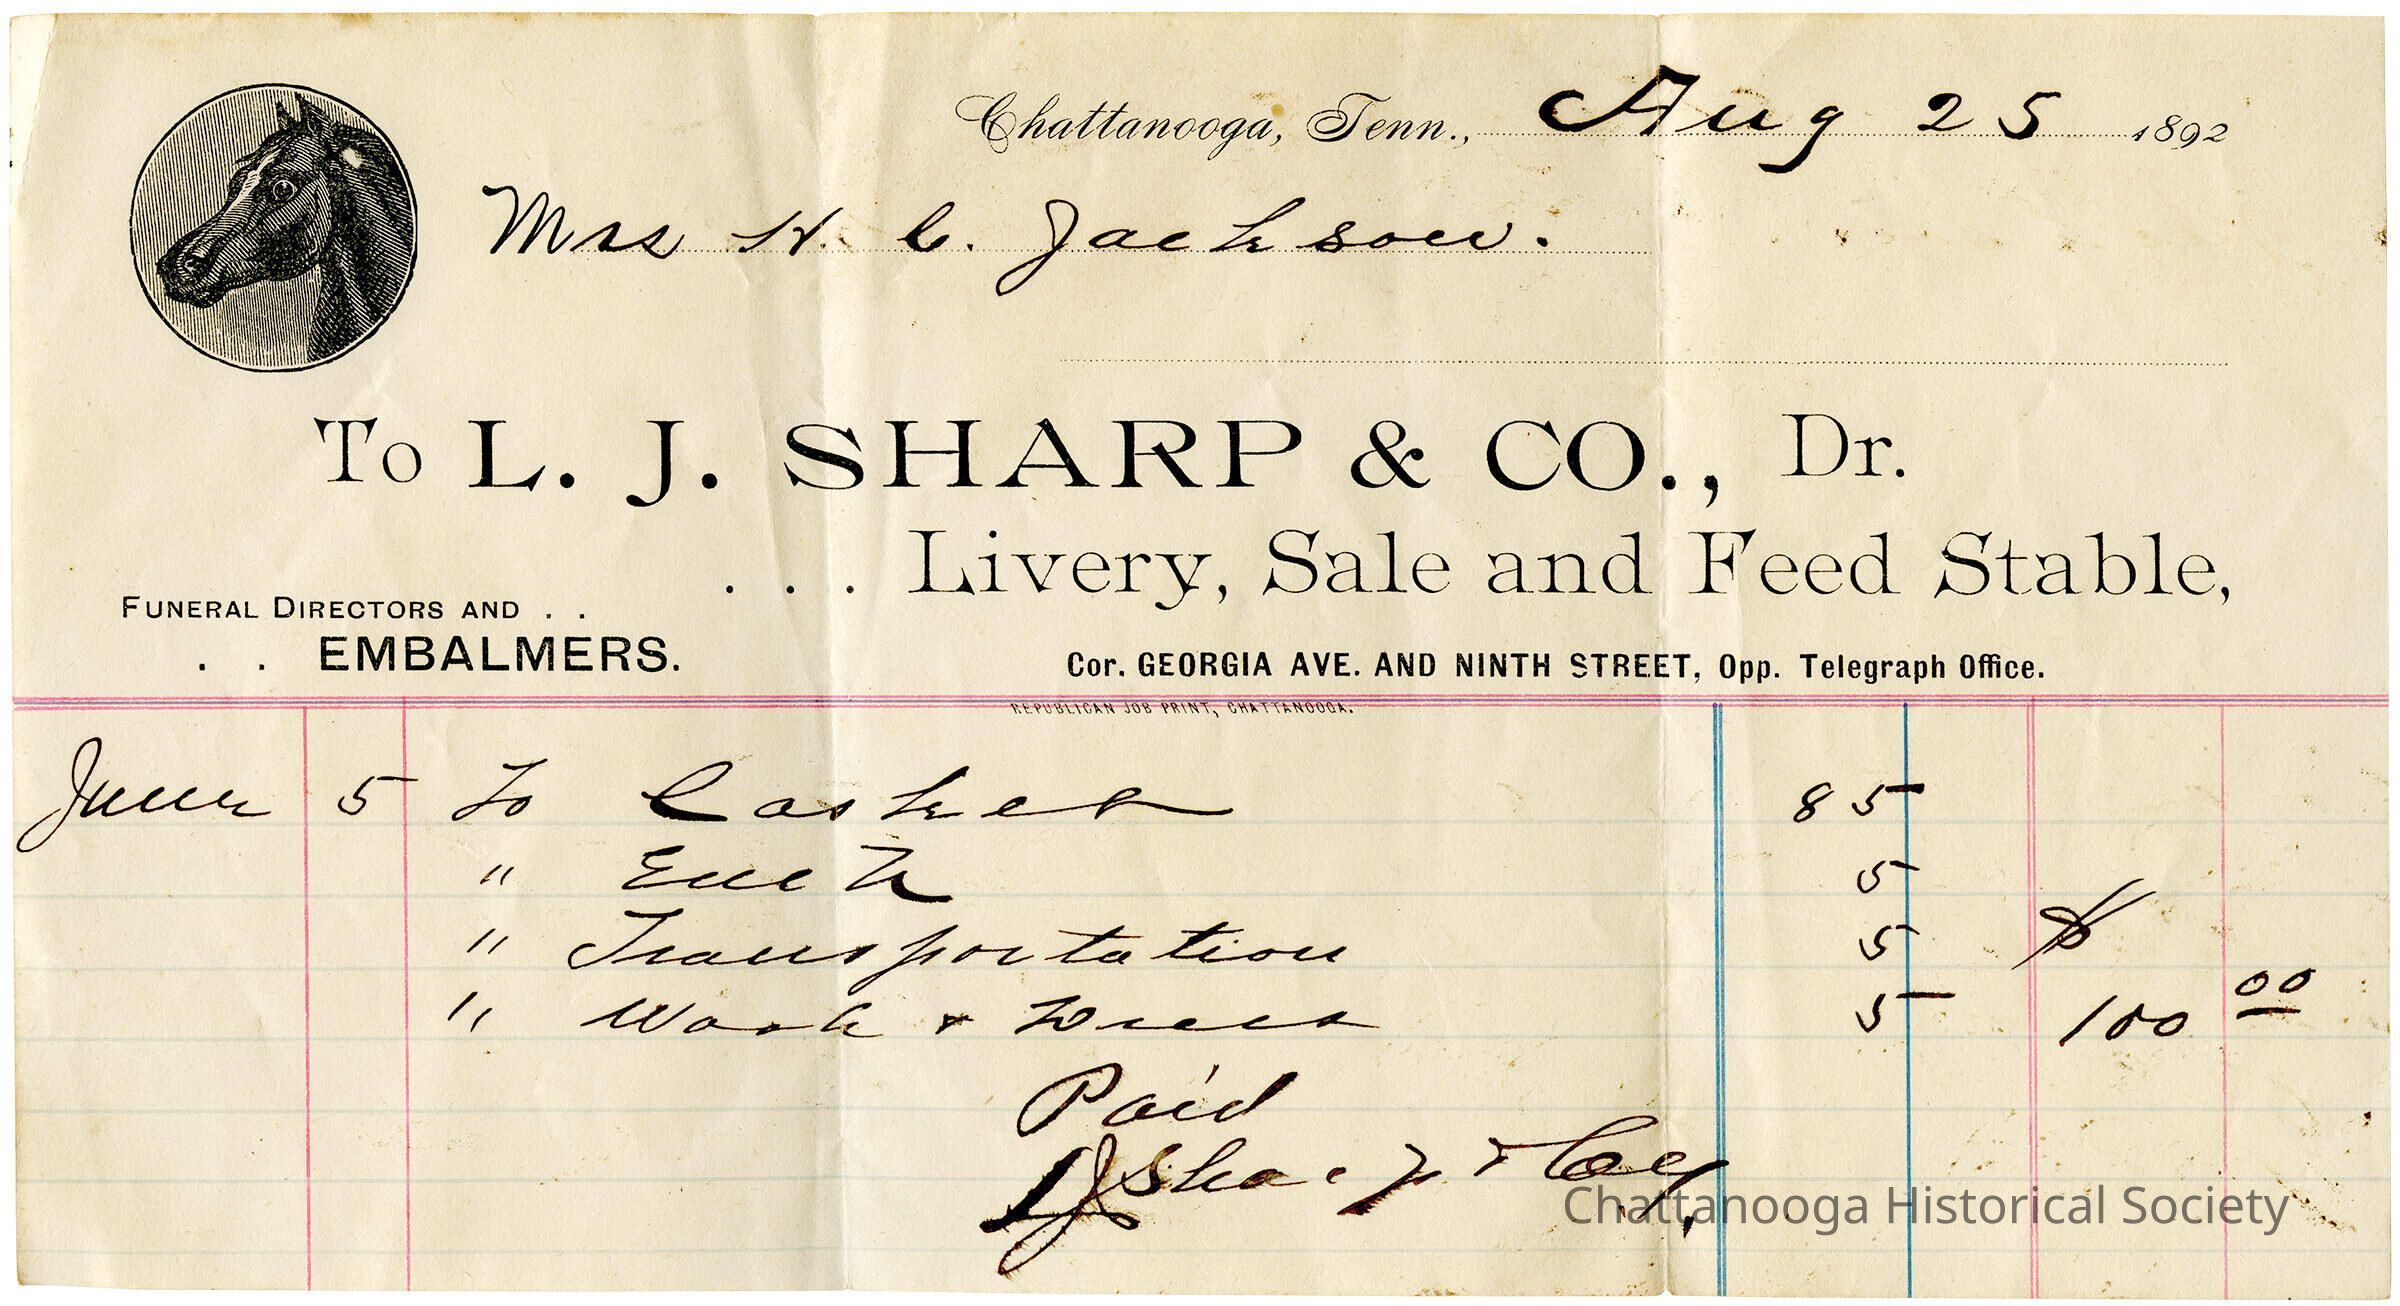 Chattanooga, Tenn., Aug 25 1892
Mrs H. C. Jackson.
To L. J. SHARP & CO., Dr.
. . . Livery, Sale and Feed Stable,
FUNERAL DIRECTORS AND . .
. . EMBALMERS.
Cor. GEORGIA AVE. AND NINTH STREET, Opp. Telegraph Office.
REPUBLICAN JOB PRINT, CHATTANOOGA.
June 5 To Casket 85
" 5
" Transportation 5 $
" Wash & Dress 5 100 00
Paid
LJ Sharp & Coy,
Chattanooga Historical Society